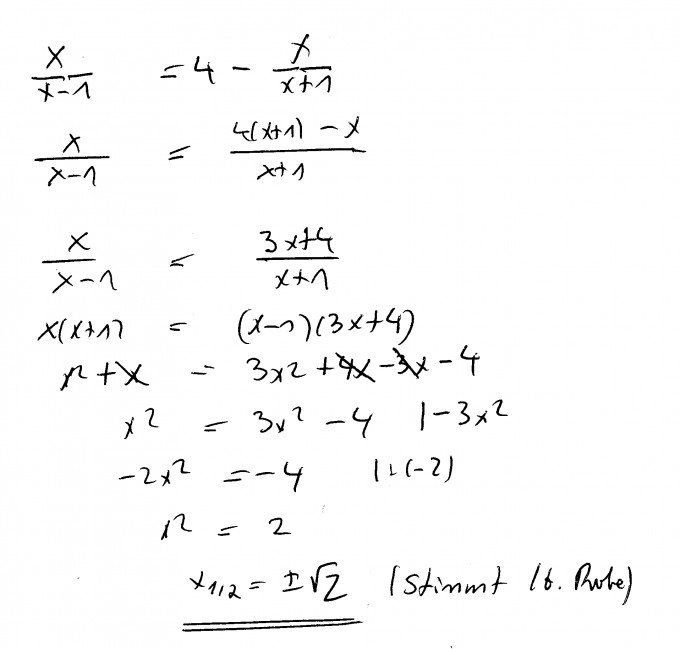 x/(x-1) = 4 - x/(x+1)
x/(x-1) = (4(x+1) - x)/(x+1)
x/(x-1) = (3x+4)/(x+1)
x(x+1) = (x-1)(3x+4)
x² + x = 3x² + 4x - 3x - 4
x² = 3x² - 4 | -3x²
-2x² = -4 | : (-2)
x² = 2
x₁,₂ = ±√2 (Stimmt lt. Probe)